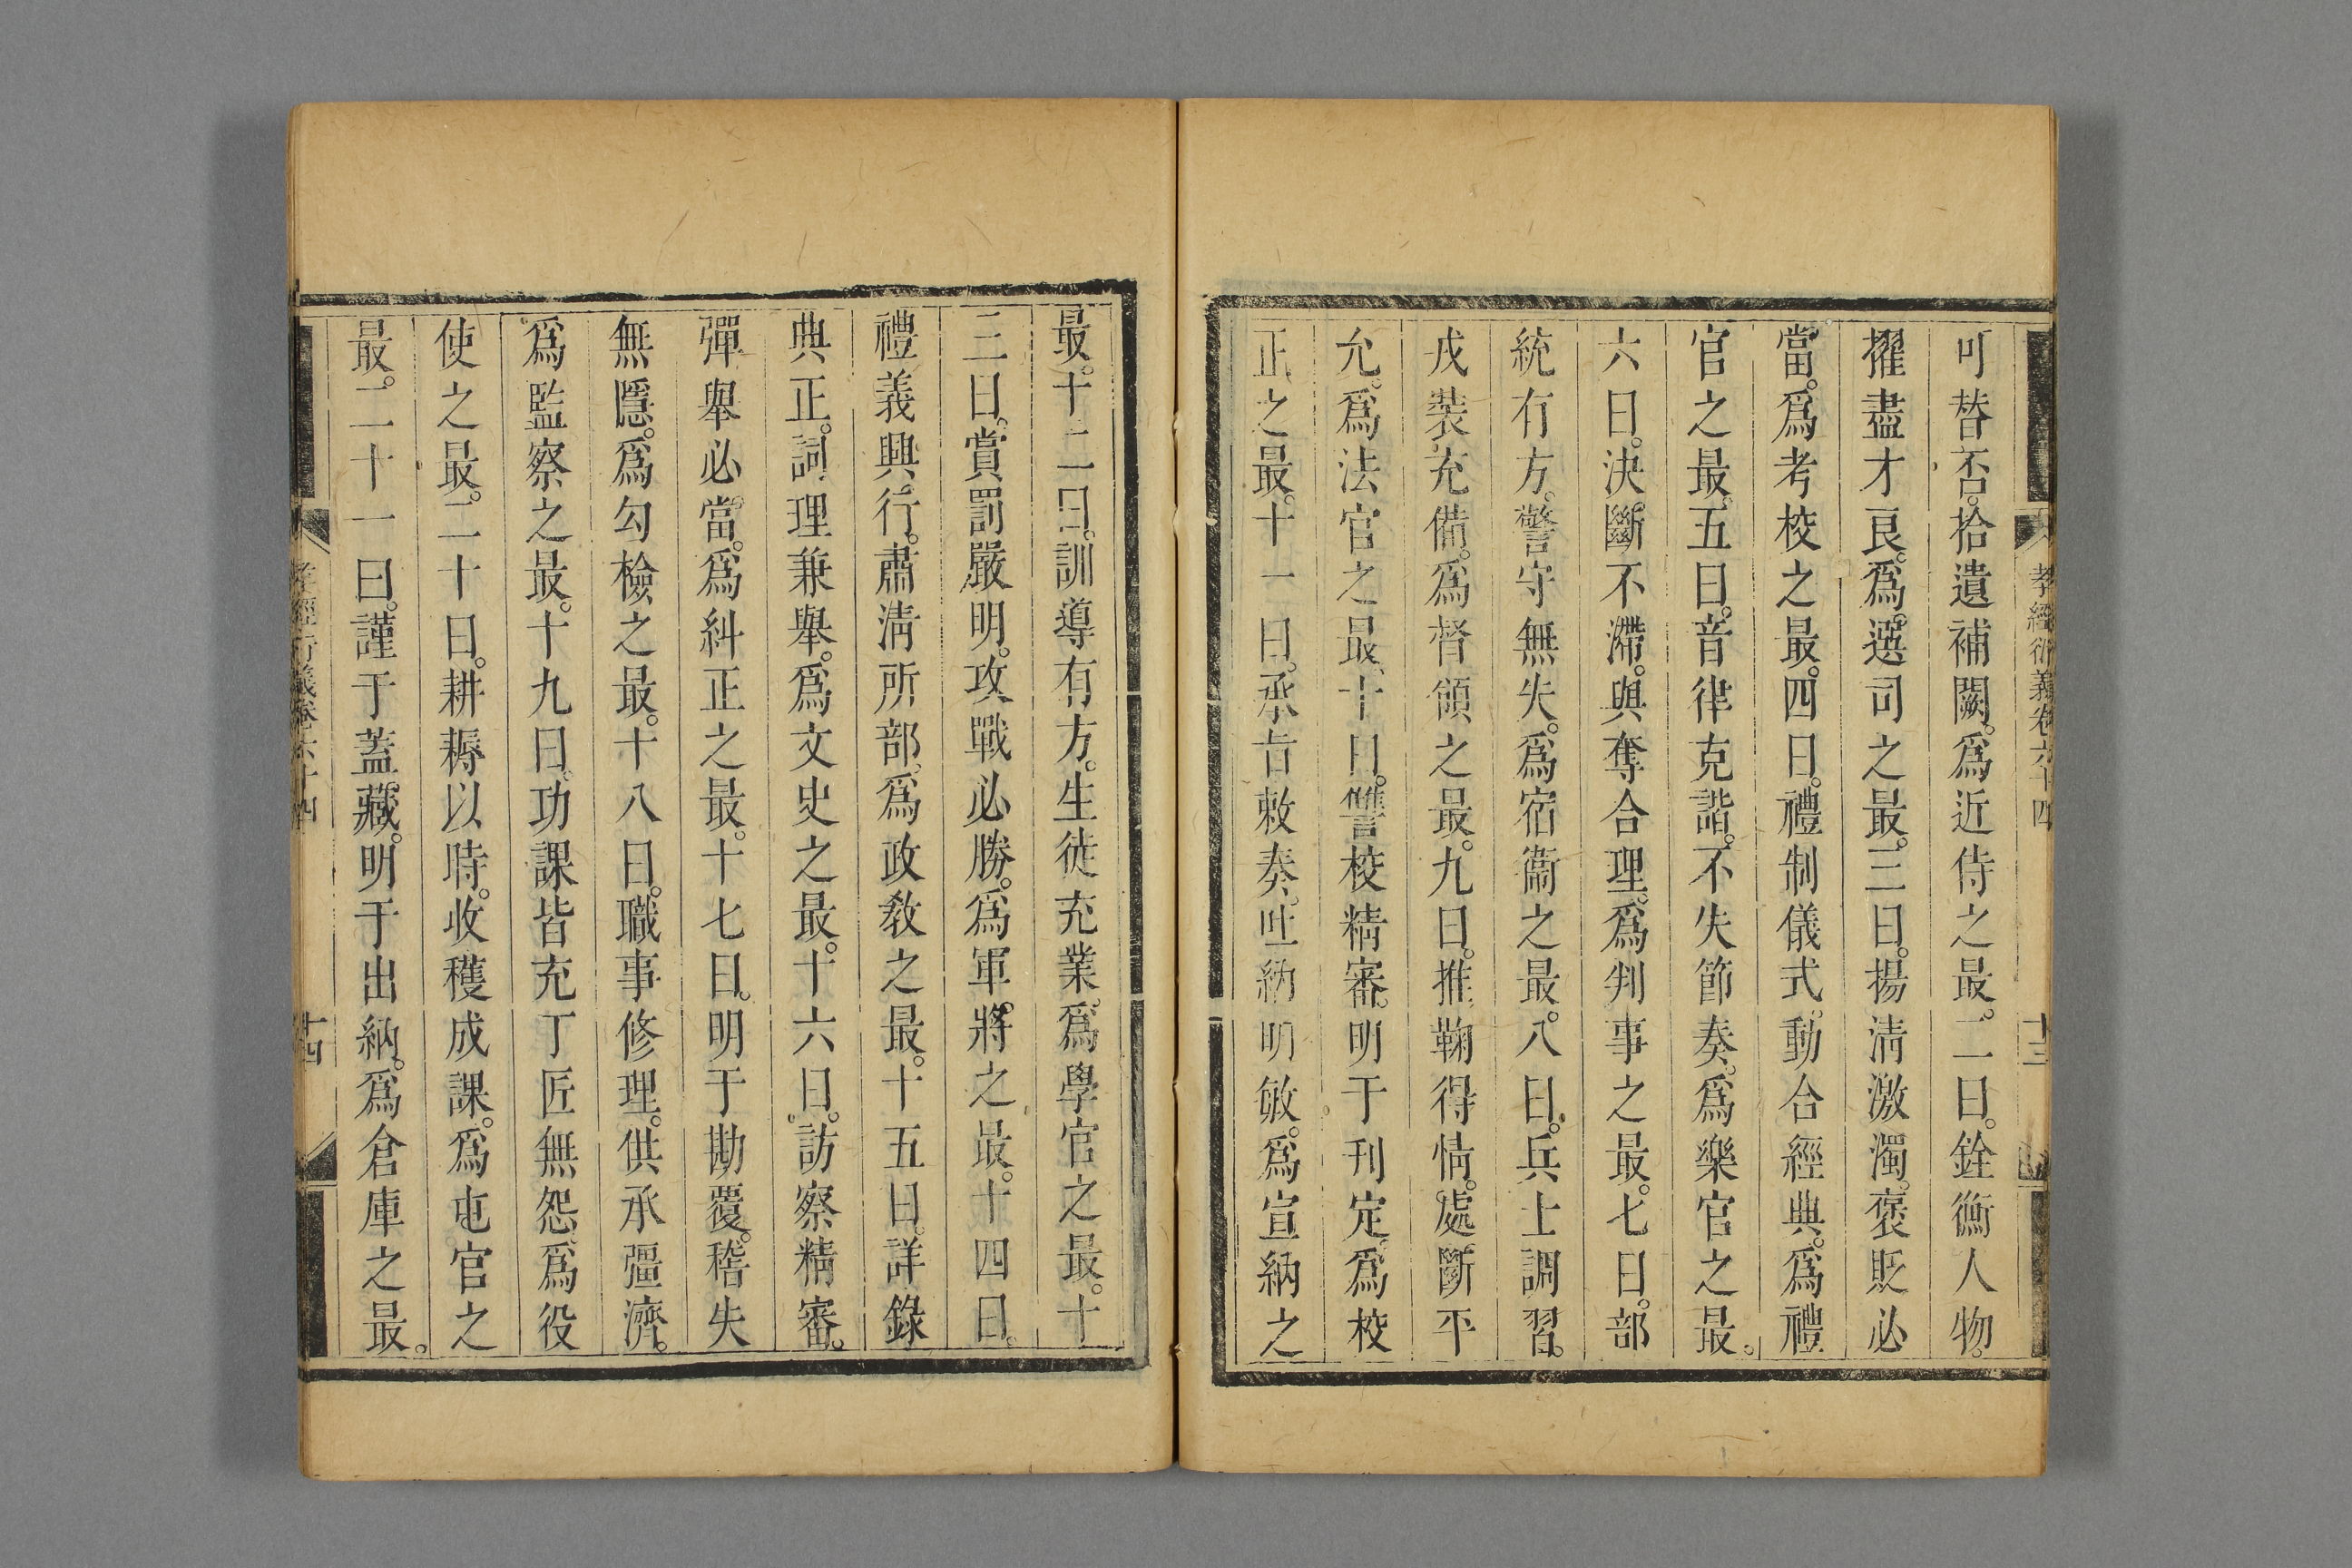 孝經衍義卷六十四
十三
可替否。拾遺補闕。爲近侍之最。二曰。銓衡人物。
擢盡才良。爲選司之最。三曰。揚淸激濁。褒貶必
當。爲考校之最。四曰。禮制儀式。動合經典。爲禮
官之最。五曰。音律克諧。不失節奏。爲樂官之最。
六曰。決斷不滯。與奪合理。爲判事之最。七曰。部
統有方。警守無失。爲宿衞之最。八曰。兵士調習。
戎裝充備。爲督領之最。九曰。推鞠得情。處斷平
允。爲法官之最。十曰。讐校精審。明于刊定。爲校
正之最。十一曰。承旨敕奏。吐納明敏。爲宣納之
最。十二曰。訓導有方。生徒充業。爲學官之最。十
三曰。賞罰嚴明。攻戰必勝。爲軍將之最。十四曰。
禮義興行。肅淸所部。爲政敎之最。十五曰。詳錄
典正。詞理兼舉。爲文史之最。十六曰。訪察精審。
彈舉必當。爲糾正之最。十七曰。明于勘覆。稽失
無隱。爲勾檢之最。十八曰。職事修理。供承彊濟。
爲監察之最。十九曰。功課皆充。丁匠無怨。爲役
使之最。二十曰。耕耨以時。收穫成課。爲屯官之
最。二十一曰。謹于蓋藏。明于出納。爲倉庫之最。
孝經衍義卷六十四
十四